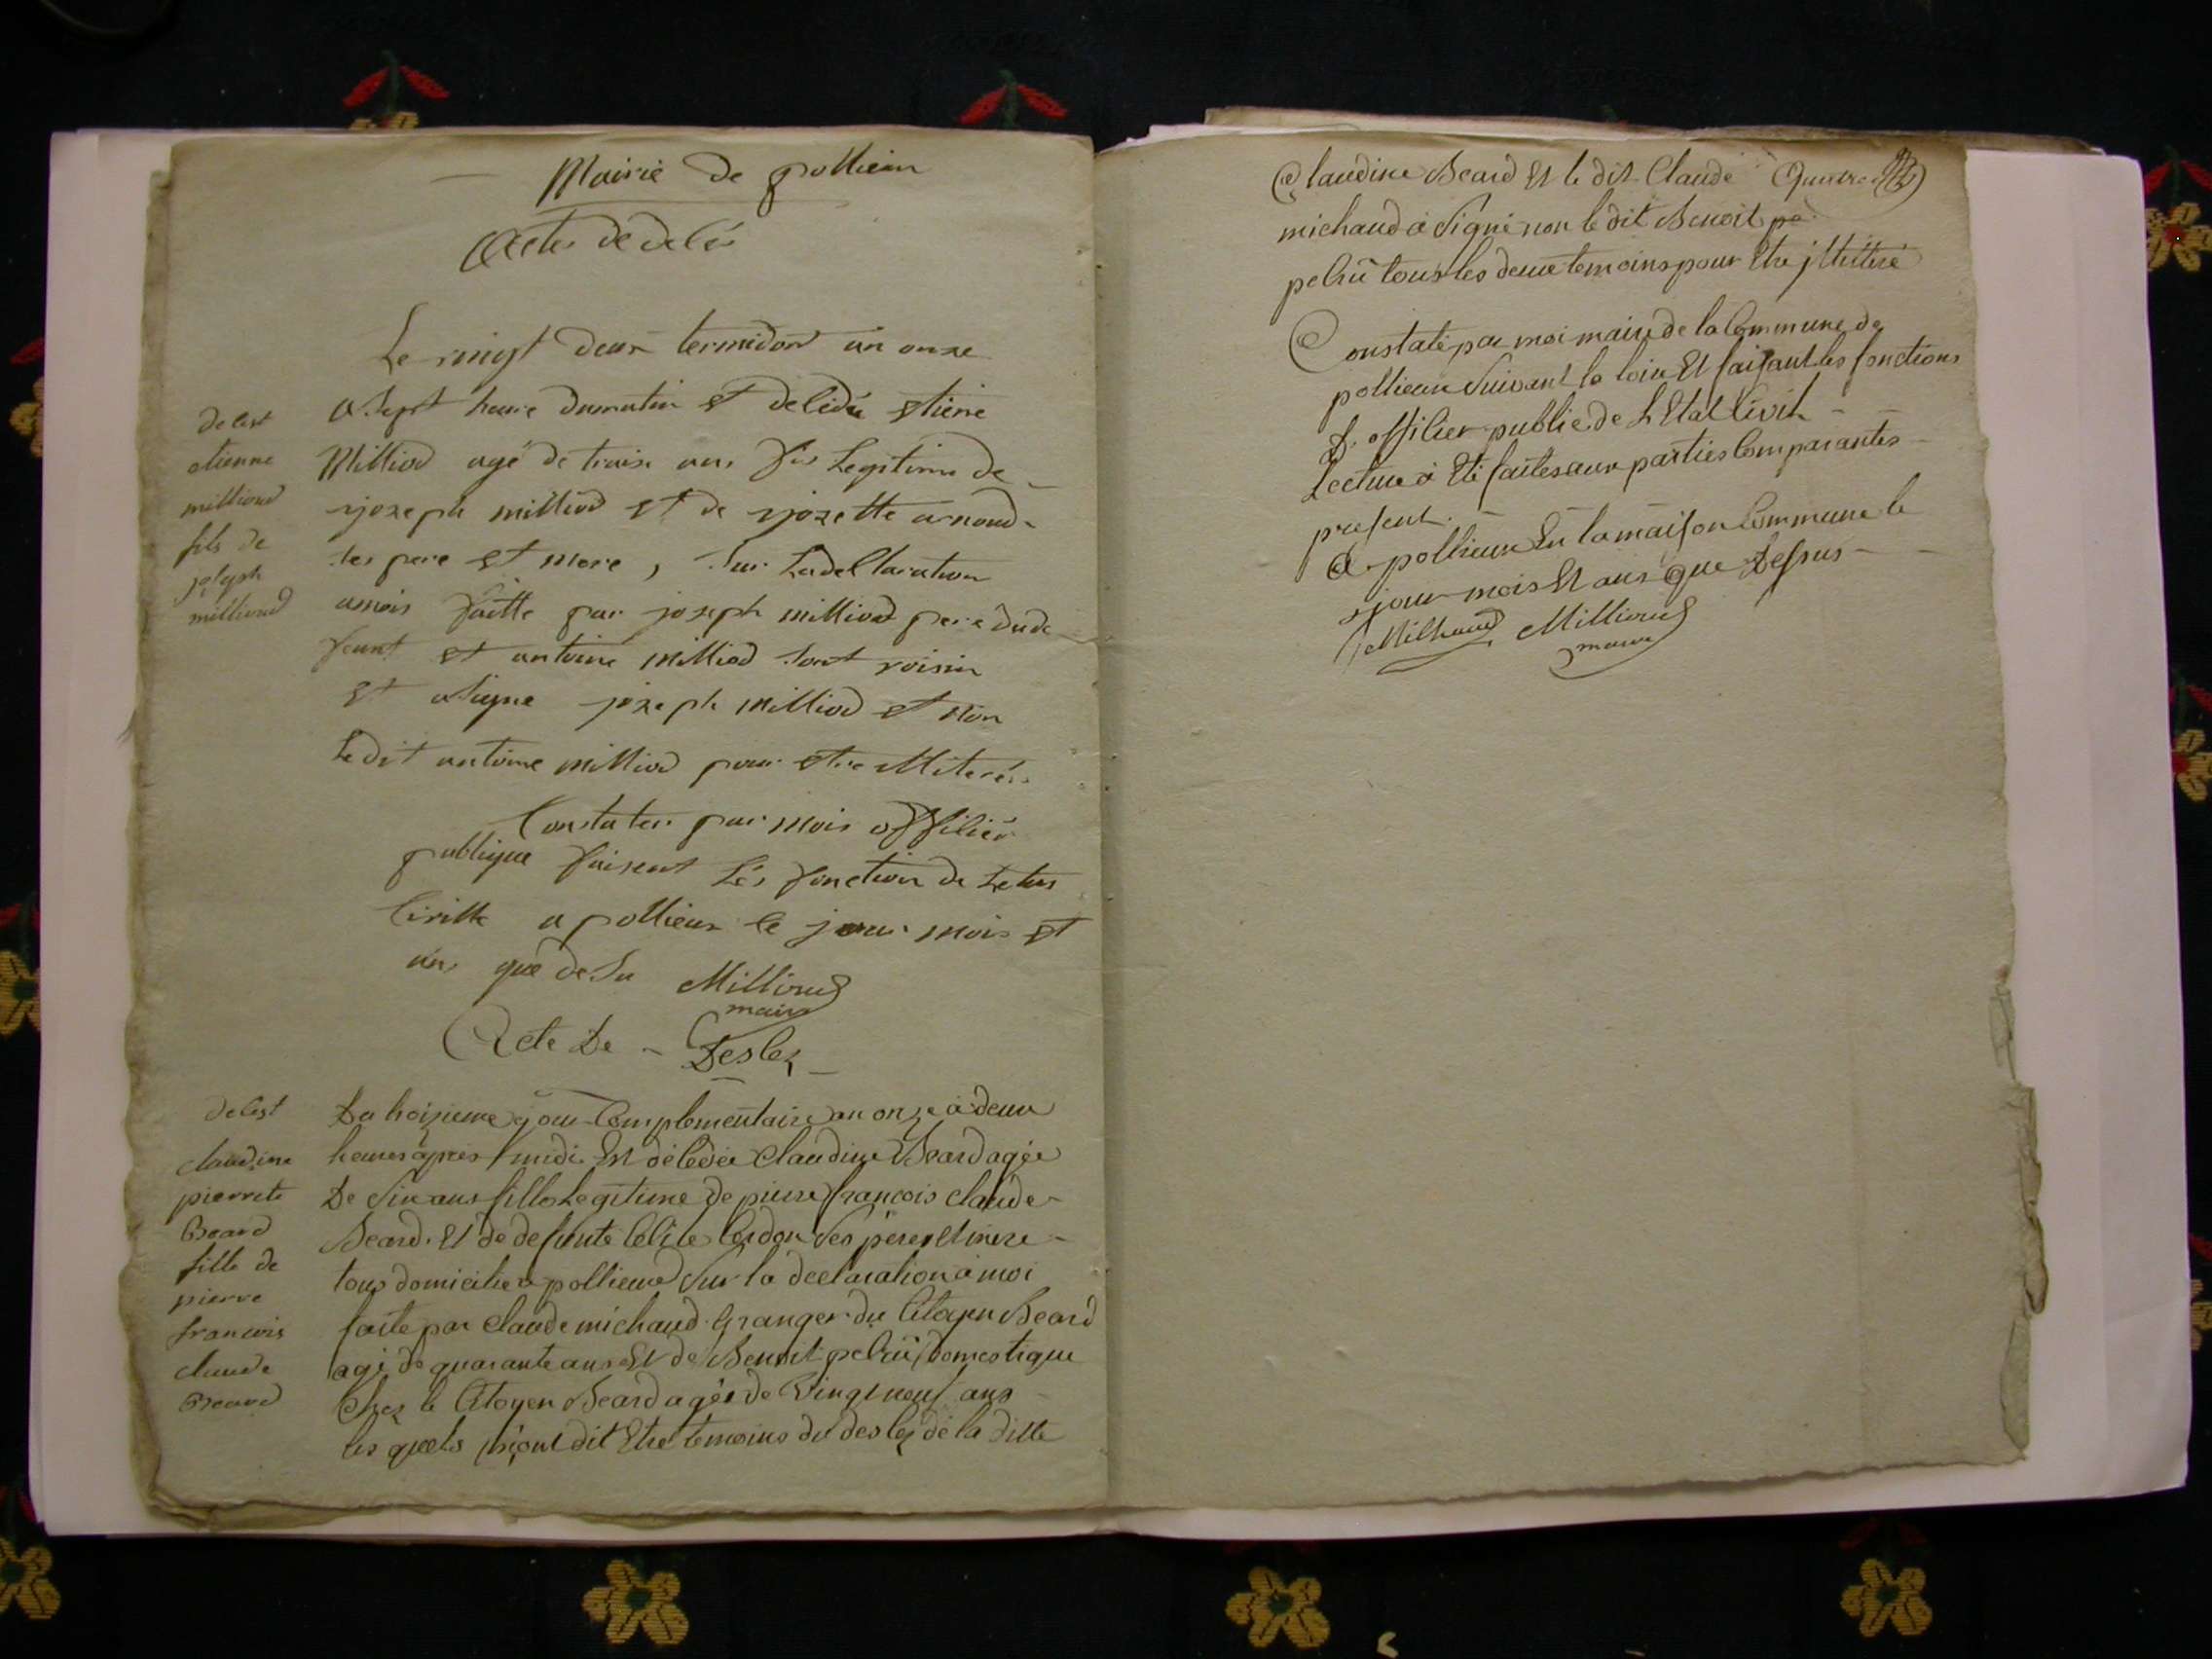 Mairie de pollieux
Acte de delés
Le vingt deux termidor an onze
a sept heure dumatin et deledée etiene
Milliod agé de traise ans fis Legitime de
joseph milliod et de jozette arnoud
ses pere et mere, sur Ladeltaration
amois faitte par joseph milliod pere dude
funt et antoine milliod sont voisin
et asigne joseph milliod et non
Ledit antoine milliod pour etre illiterés
Constater par mois offilier
publique faisent Lés fonction de Letas
Civille a pollieux le jour mois et
an que desu Milliond
maire
delest
etienne
milliond
fils de
joseph
milliond
Acte De Desles
Du troizieme jour Complementaire an onze a deux
heures apres midi Est deledée Claudine Beard agée
De Six ans fille Legitime de pierre francois claude
Beard. Et de defunte Cordon Ses pere et mere
tous domiciliés a pollieux Sur la declaration a moi
faite par claude michaud Granger du Citoyen Beard
agé de quarante ans Et de Benoit domestique
Chez le Citoyen Beard agée de Vingt neuf ans
les quels mont dit Etre temoins du desles de la ditte
delest
claudine
pierrete
Beard
fille de
pierre
francois
claude
Beard
Claudine Beard Et le dit Claude
michaud a Signé non le dit Benoit pe
tous les deux temoins pour Etre jllettéré
Constaté par moi maire de la Commune de
pollieux Suivant la loix Et faisant les fonctions
D. offilier public de L Etat Civil
Lecture a Eté faites aux parties Comparantes
present.
A pollieux En la maison Commune le
jour mois Et ans que Dessus
Milhaud Milliond
maire